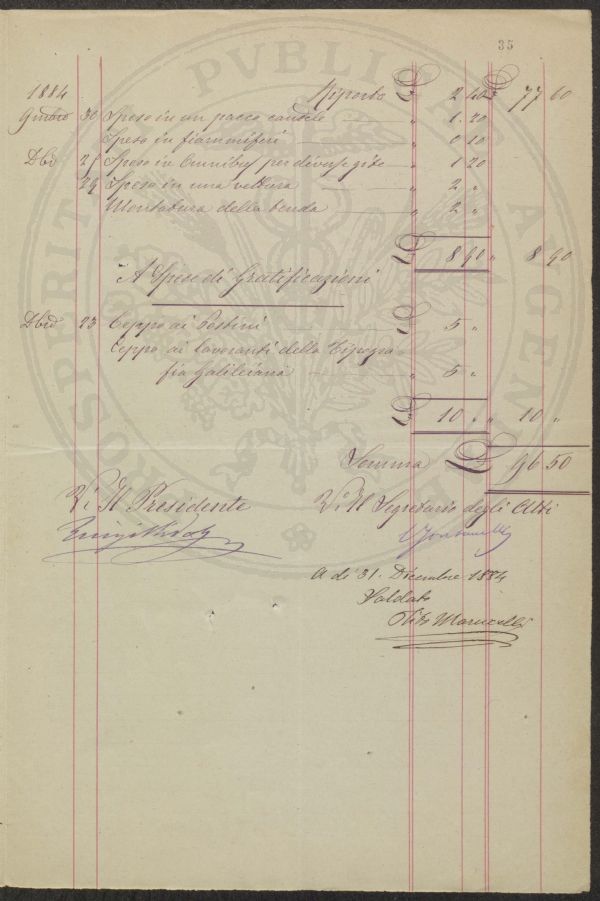 35
1884 Riporto £ 2 40 £ 77 60
9mbre 30 Speso in un pacco candele " 1. 20
Speso in fiammiferi " 0 10
Dbre Speso in Omnibus per diverse gite " 1 20
29 Speso in una vettura " 2 "
Montatura della tenda " 2 "
£ 8 90 " 8 90
A Spese di Gratificazioni
Dbre 23 Ceppo ai Postini £ 5 "
Ceppo ai lavoranti della Tipogra
fia Galileiana " 5 "
£ 10 " " 10 "
Somma £ 96 50
V: Il Presidente V: Il Segretario degli Atti
A dì 31. Dicembre 1884
Saldato
Tito Marucelli
PVBLICAE
PROSPERITATIS AVGENDAE